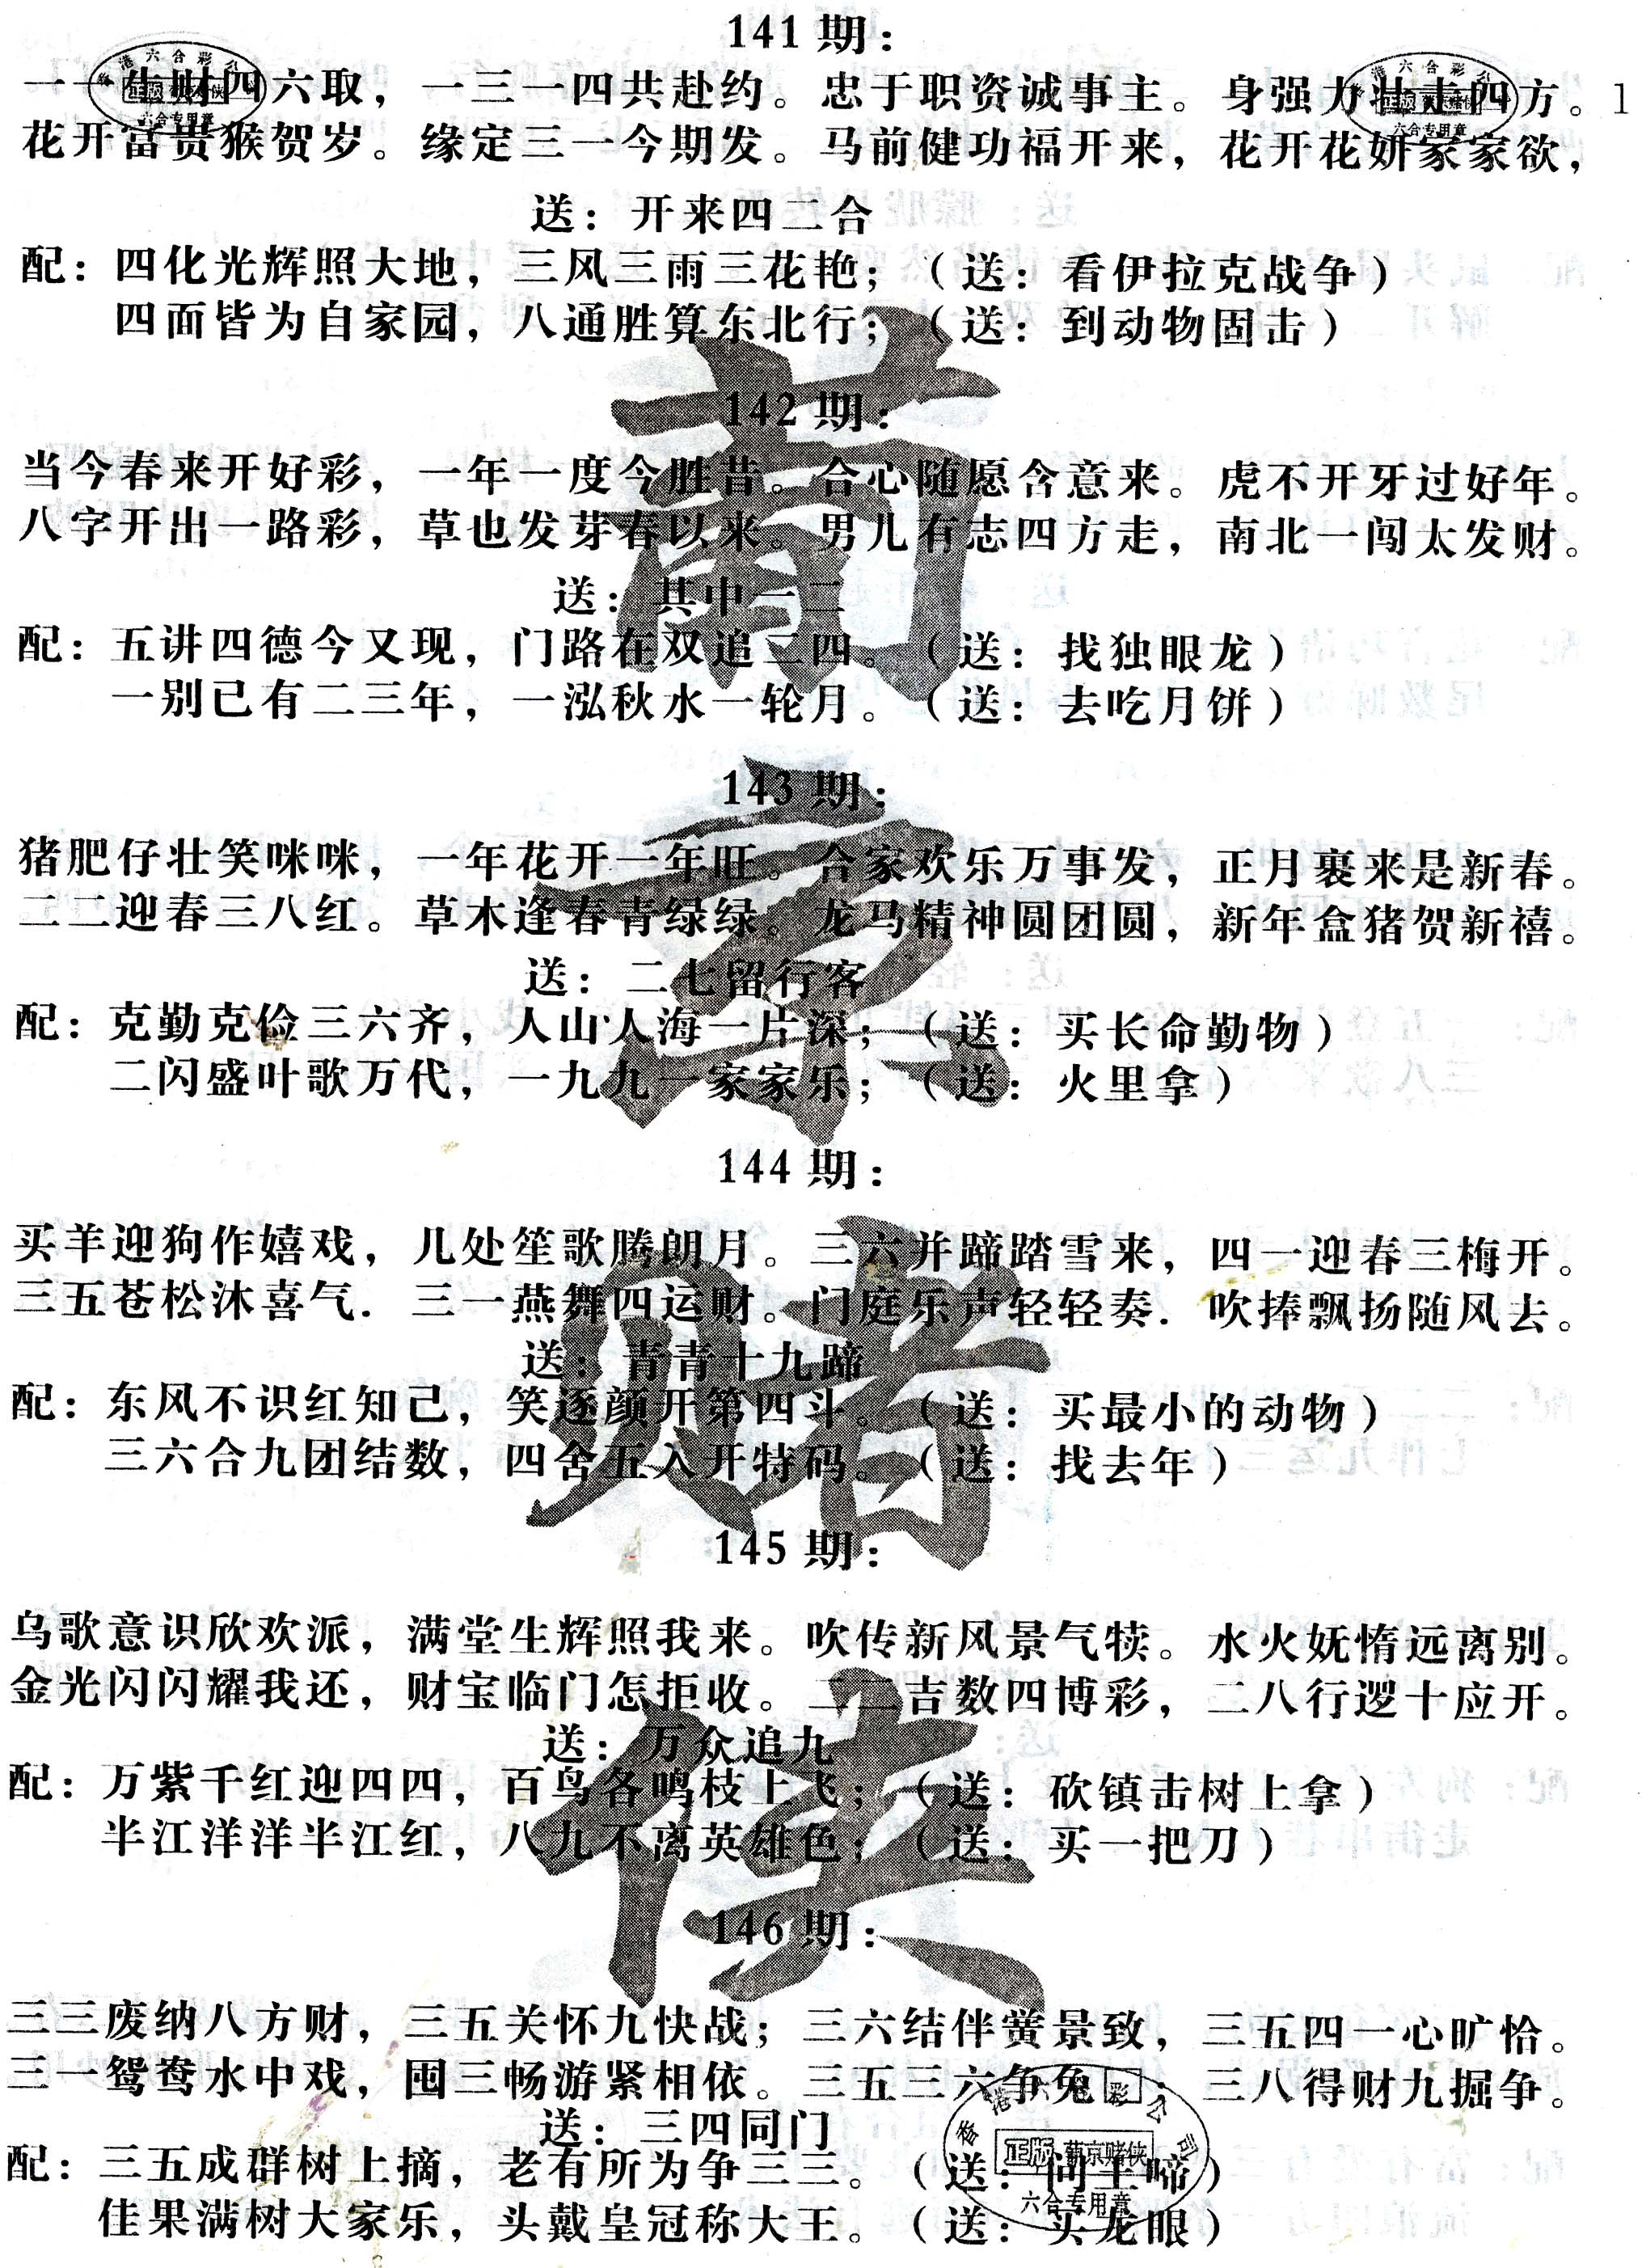 141期：
一一生财四六取，一三一四共赴约。忠于职资诚事主。身强力壮走四方。1
花开富贵猴贺岁。缘定三一今期发。马前健功福开来，花开花妍家家欲，
送：开来四二合
配：四化光辉照大地，三风三雨三花艳；（送：看伊拉克战争）
四面皆为自家园，八通胜算东北行；（送：到动物固击）
142期：
当今春来开好彩，一年一度今胜昔。合心随愿含意来。虎不开牙过好年。
八字开出一路彩，草也发芽春以来。男儿有志四方走，南北一闯太发财。
送：其中一二
配：五讲四德今又现，门路在双追二四。（送：找独眼龙）
一别已有二三年，一泓秋水一轮月。（送：去吃月饼）
143期：
猪肥仔壮笑咪咪，一年花开一年旺。合家欢乐万事发，正月裹来是新春。
二二迎春三八红。草木逢春青绿绿。龙马精神圆团圆，新年盒猪贺新禧。
送：二七留行客
配：克勤克俭三六齐，人山人海一片深；（送：买长命勤物）
二闪盛叶歌万代，一九九一家家乐；（送：火里拿）
144期：
买羊迎狗作嬉戏，几处笙歌腾朗月。三六并蹄踏雪来，四一迎春三梅开。
三五苍松沐喜气．三一燕舞四运财。门庭乐声轻轻奏．吹捧飘扬随风去。
送：青青十九蹄
配：东风不识红知己，笑逐颜开第四斗。（送：买最小的动物）
三六合九团结数，四舍五入开特码。（送：找去年）
145期：
乌歌意识欣欢派，满堂生辉照我来。吹传新风景气犊。水火妩惰远离别。
金光闪闪耀我还，财宝临门怎拒收。二二吉数四博彩，二八行逻十应开。
送：万众追九
配：万紫千红迎四四，百鸟各鸣枝上飞；（送：砍镇击树上拿）
半江洋洋半江红，八九不离英雄色；（送：买一把刀）
146期：
三三废纳八方财，三五关怀九快战；三六结伴黉景致，三五四一心旷恰。
三一鸳鸯水中戏，囤三畅游紧相依。三五三六争兔，三八得财九掘争。
送：三四同门
配：三五成群树上摘，老有所为争三三。（送：问王啼）
佳果满树大家乐，头戴皇冠称大王。（送：买龙眼）
葡京赌侠
香港六合彩公司
正版 葡京赌侠
六合专用章